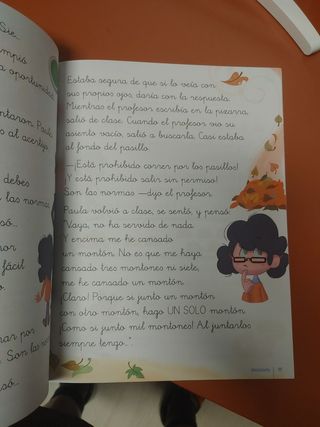 Sie...
mpió
a oportunidad
ntaron. Paula
s al acertijo
debes
y las normas,
só...
nor
fácil
rar por
. Son las nor
só...
Estaba segura de que si lo veía con
sus propios ojos, daría con la respuesta.
Mientras el profesor escribía en la pizarra,
salió de clase. Cuando el profesor vio su
asiento vacío, salió a buscarla. Casi estaba
al fondo del pasillo.
—¡Está prohibido correr por los pasillos!
¡Y está prohibido salir sin permiso!
Son las normas —dijo el profesor.
Paula volvió a clase, se sentó, y pensó:
"Vaya, no ha servido de nada.
Y encima me he cansado
un montón. No es que me haya
cansado tres montones ni siete,
me he cansado un montón.
¡Claro! Porque si junto un montón
con otro montón, hago UN SOLO montón.
¡Como si junto mil montones! Al juntarlos
siempre tengo...".